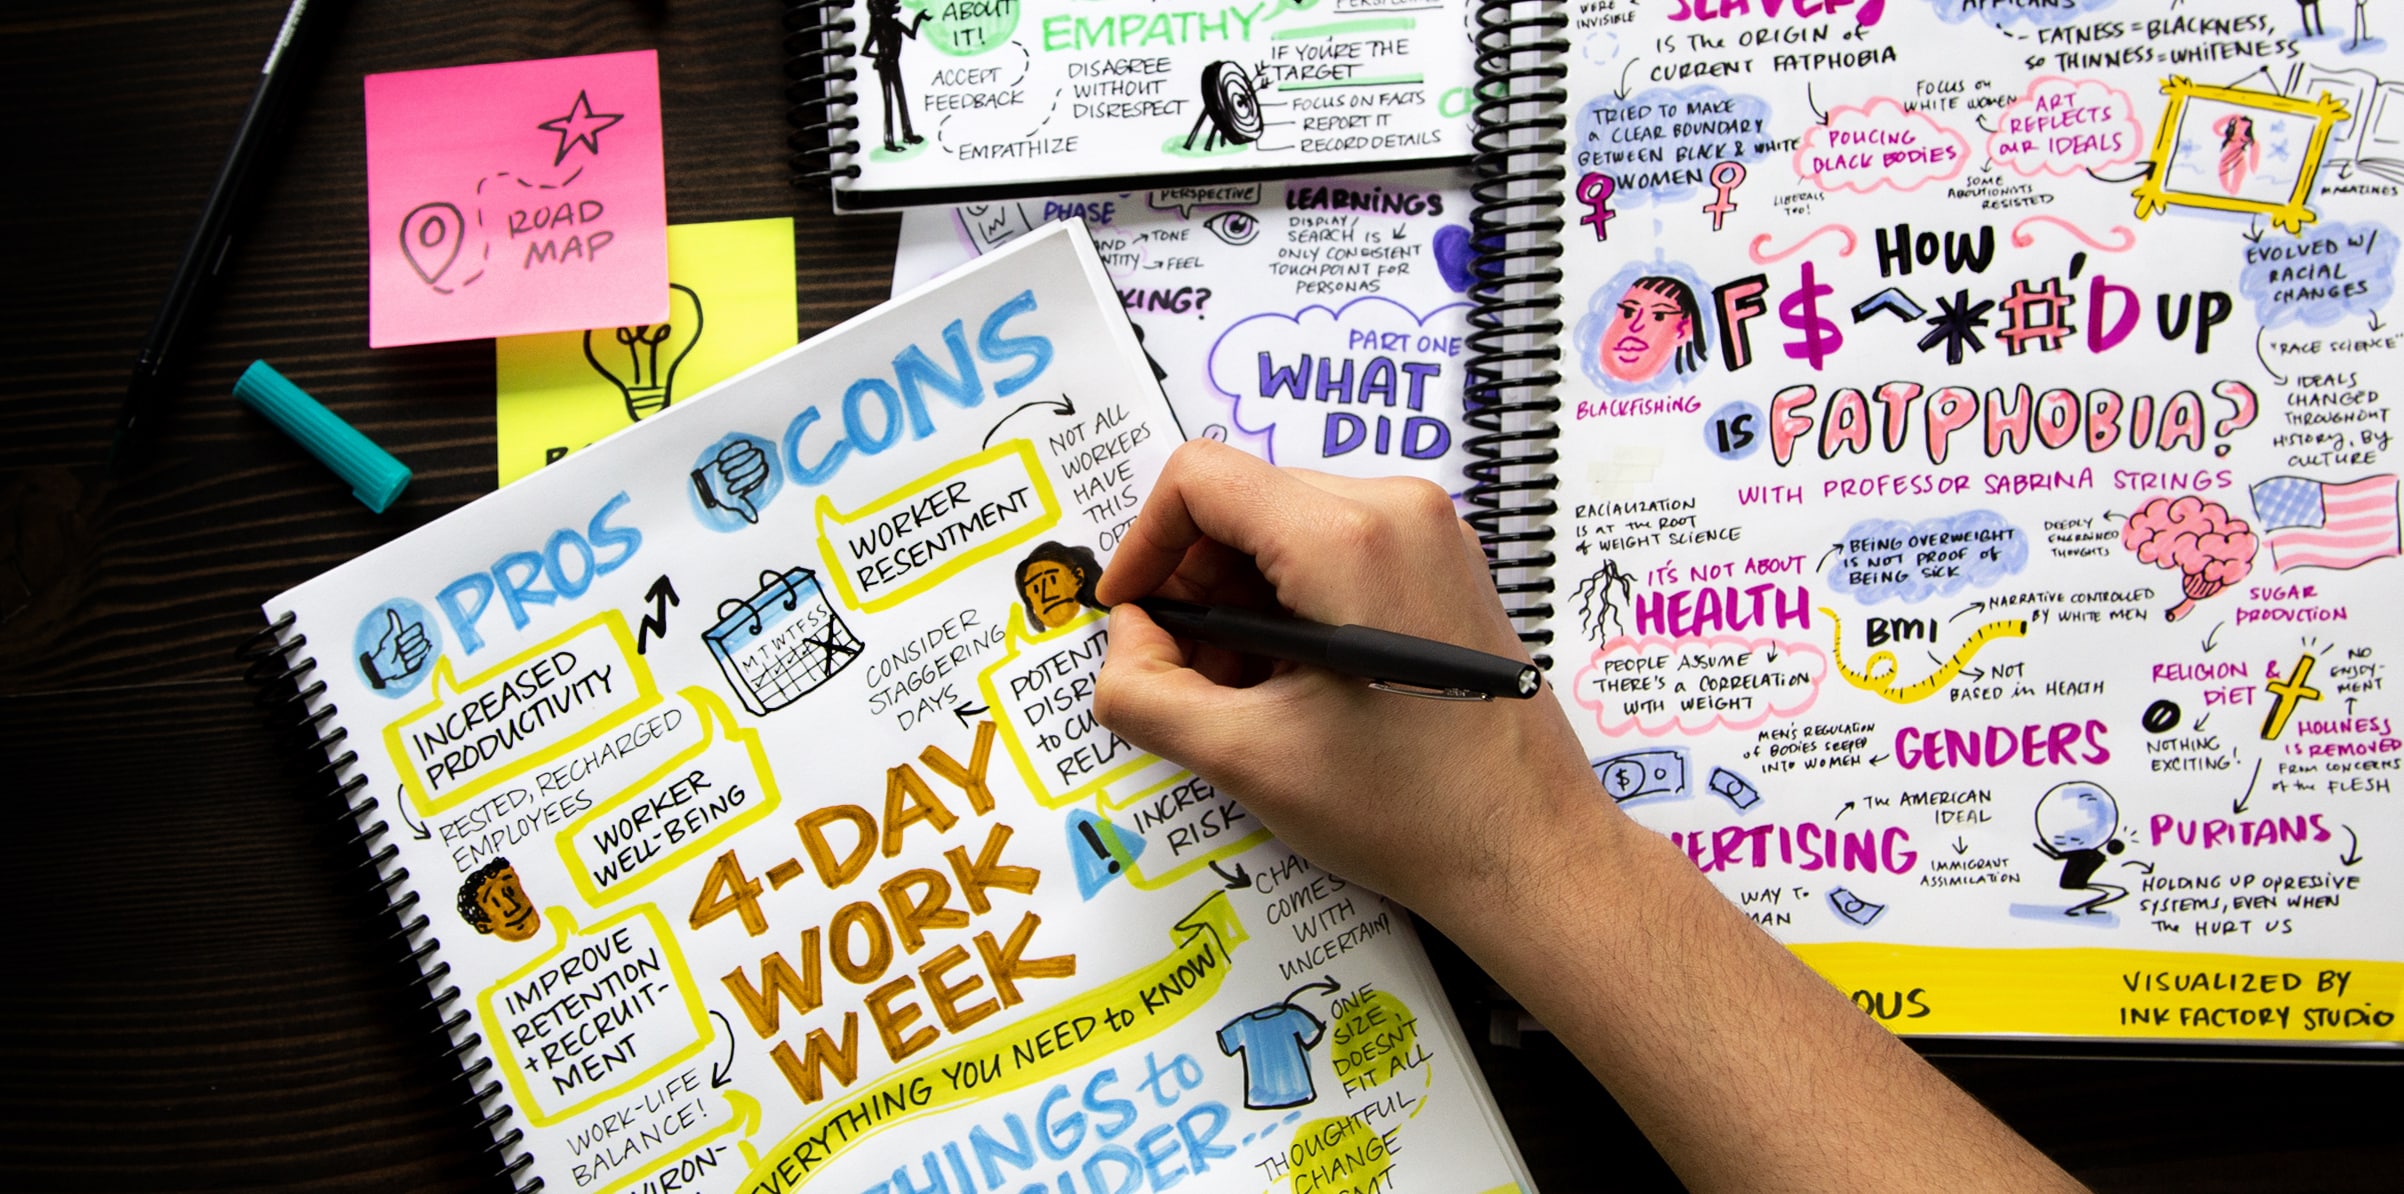 ROAD
MAP
ABOUT
IT!
EMPATHY
ACCEPT
FEEDBACK
DISAGREE
WITHOUT
DISRESPECT
EMPATHIZE
IF YOU'RE THE
TARGET
FOCUS ON FACTS
REPORT IT
RECORD DETAILS
PHASE
PERSPECTIVE
TONE
FEEL
LEARNINGS
DISPLAY/
SEARCH IS
ONLY CONSISTENT
TOUCHPOINT FOR
PERSONAS
KING?
PART ONE
WHAT
DID
PROS
CONS
INCREASED
PRODUCTIVITY
RESTED, RECHARGED
EMPLOYEES
WORKER
WELL-BEING
IMPROVE
RETENTION
+RECRUIT-
MENT
WORK-LIFE
BALANCE!
M T W T F S S
WORKER
RESENTMENT
NOT ALL
WORKERS
HAVE
THIS
CONSIDER
STAGGERING
DAYS
POTENT
DISR
to CU
RELA
INCRE
RISK
CHA
COMES
WITH
UNCERTAINTY
4-DAY
WORK
WEEK
EVERYTHING YOU NEED to KNOW
THINGS to
SIDER...
ONE
SIZE
DOESN'T
FIT ALL
THOUGHTFUL
CHANGE
WERE
INVISIBLE
SLAVERY
IS THE ORIGIN of
CURRENT FATPHOBIA
AFRICANS
- FATNESS = BLACKNESS,
so THINNESS = WHITENESS
TRIED TO MAKE
a CLEAR BOUNDARY
BETWEEN BLACK & WHITE
WOMEN
POLICING
BLACK BODIES
LIBERALS
TOO!
FOCUS on
WHITE WOMEN
ART
REFLECTS
OUR IDEALS
SOME
ABOLITIONISTS
RESISTED
MAGAZINES
HOW
F$^*#'D UP
IS FATPHOBIA?
WITH PROFESSOR SABRINA STRINGS
BLACKFISHING
EVOLVED W/
RACIAL
CHANGES
"RACE SCIENCE"
IDEALS
CHANGED
THROUGHOUT
HISTORY, BY
CULTURE
RACIALIZATION
IS AT the ROOT
of WEIGHT SCIENCE
IT'S NOT ABOUT
HEALTH
BEING OVERWEIGHT
IS NOT PROOF of
BEING SICK
DEEPLY
ENGRAINED
THOUGHTS
PEOPLE ASSUME
THERE'S a CORRELATION
WITH WEIGHT
BMI
NARRATIVE CONTROLLED
BY WHITE MEN
NOT
BASED in HEALTH
SUGAR
PRODUCTION
RELIGION &
DIET
NOTHING
EXCITING!
NO
ENJOY-
MENT
HOLINESS
IS REMOVED
FROM CONCERNS
of the FLESH
MEN'S REGULATION
of BODIES SEEPED
INTO WOMEN
GENDERS
VERTISING
THE AMERICAN
IDEAL
IMMIGRANT
ASSIMILATION
WAY TO
PURITANS
HOLDING UP OPRESSIVE
SYSTEMS, EVEN WHEN
the HURT US
OUS
VISUALIZED BY
INK FACTORY STUDIO